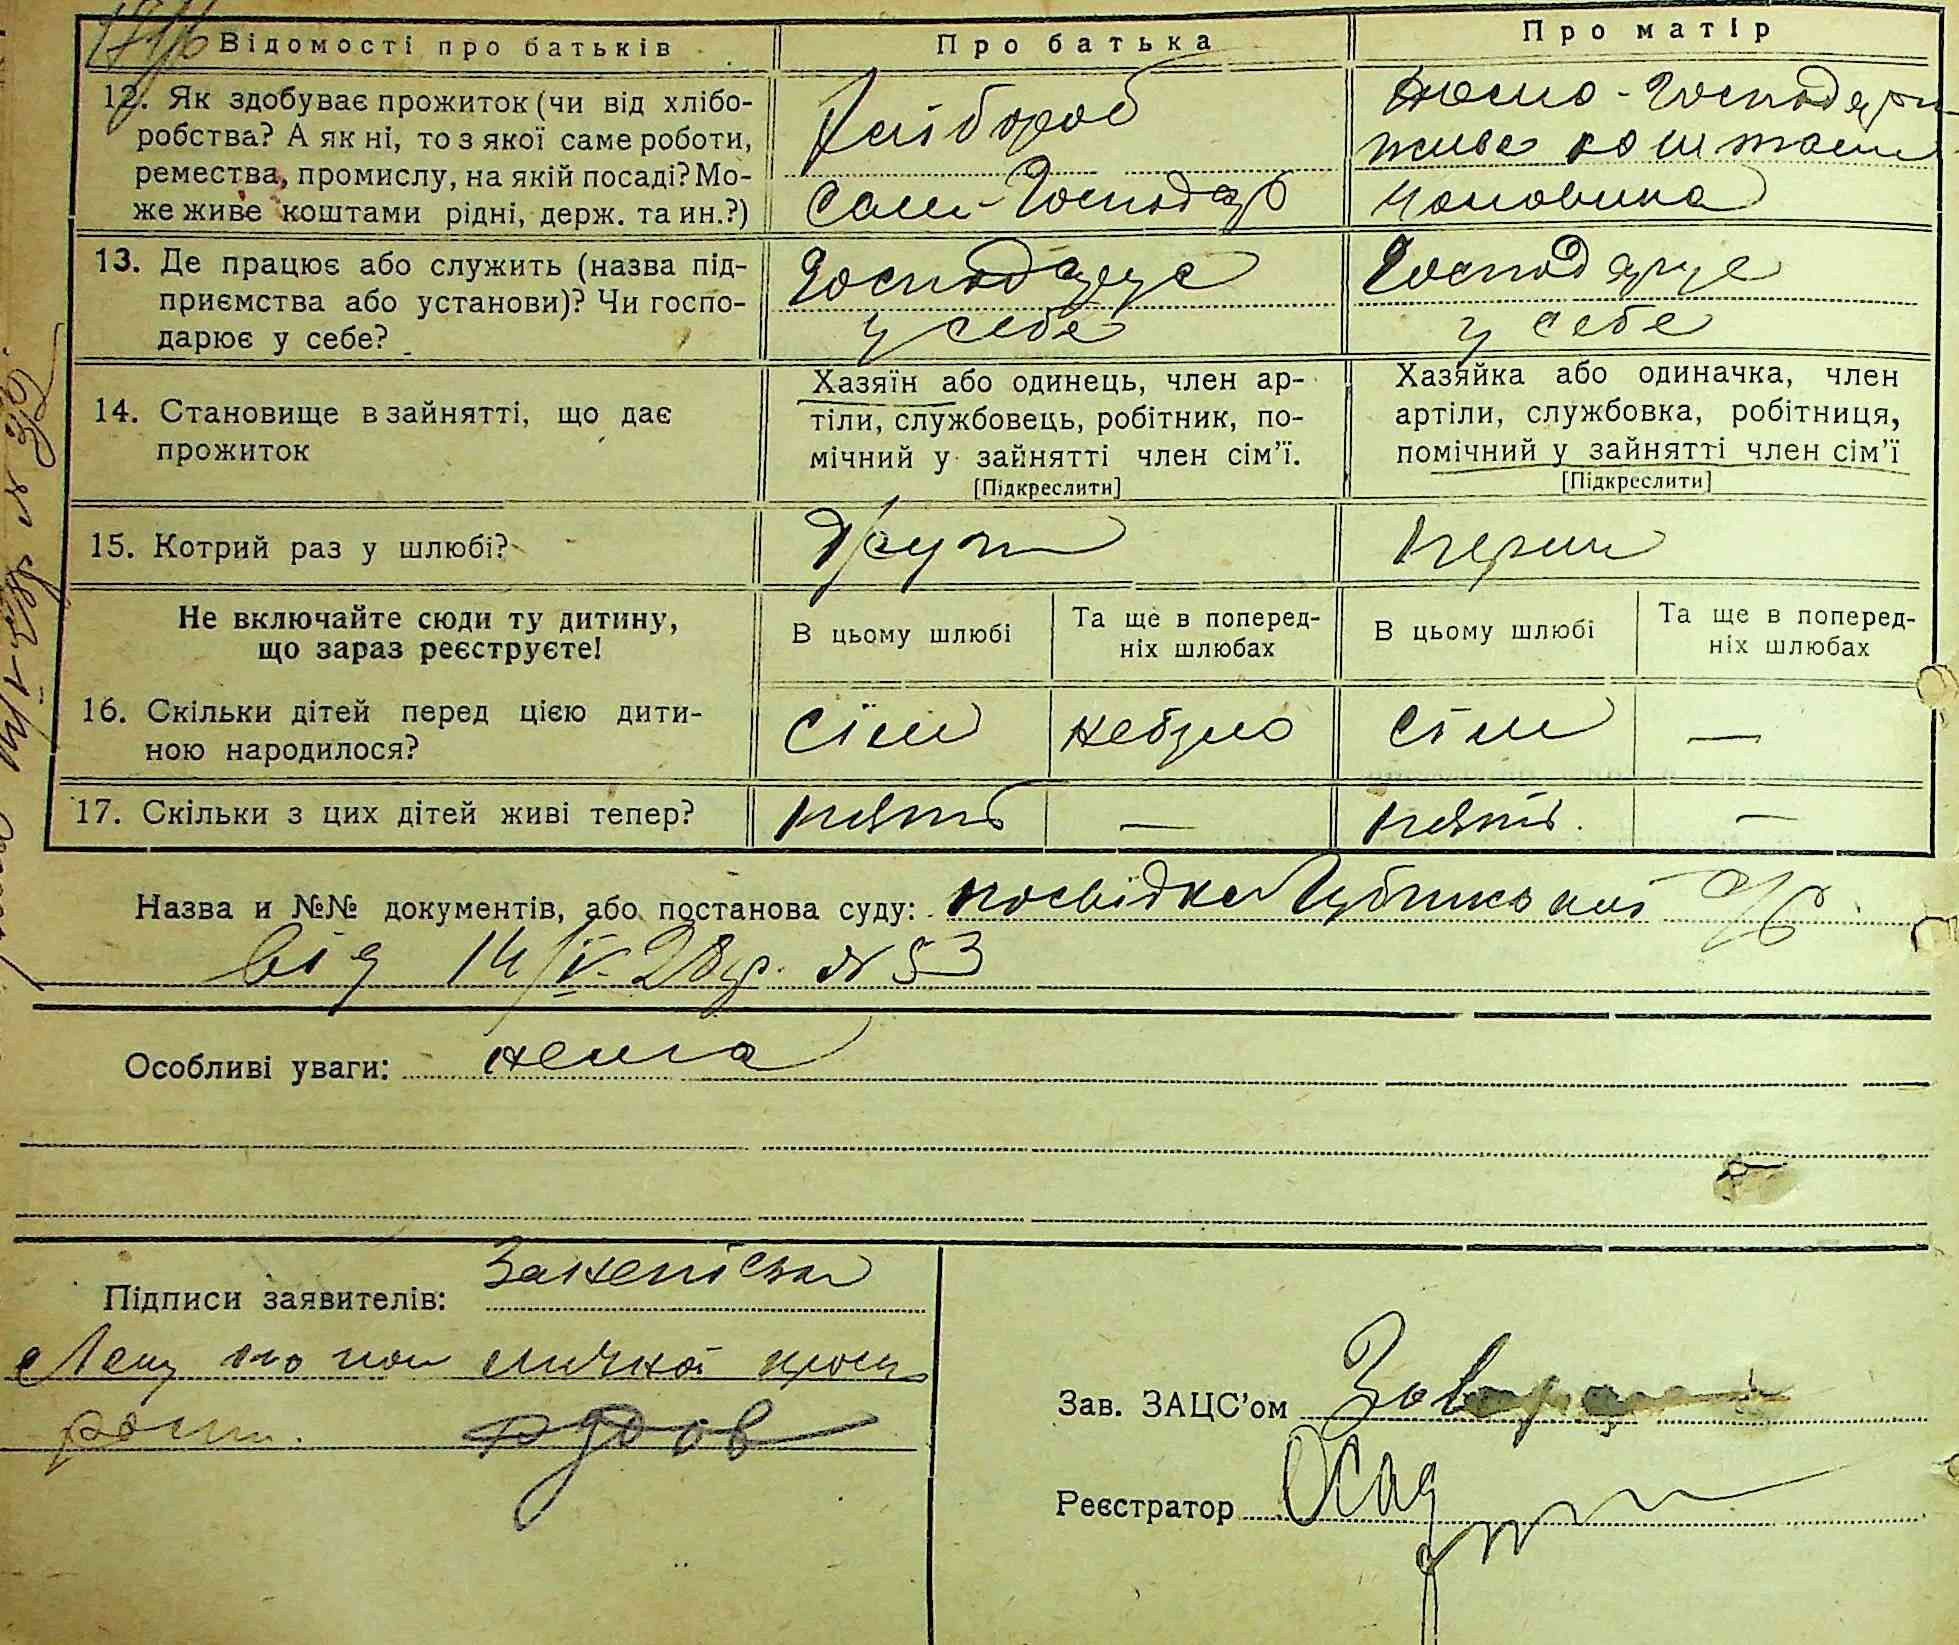 Відомості про батьків
Про батька
Про матір
12. Як здобуває прожиток (чи від хлібо-
робства? А як ні, то з якої саме роботи,
ремества, промислу, на якій посаді? Мо-
же живе коштами рідні, держ. та ин.?)
Хлібороб
сам-господар
домо-господарк
живе коштами
чоловіка
13. Де працює або служить (назва під-
приємства або установи)? Чи госпо-
дарює у себе?
Господарує
у себе
Господарує
у себе
14. Становище в зайнятті, що дає
прожиток
Хазяїн або одинець, член ар-
тіли, службовець, робітник, по-
мічний у зайнятті член сім'ї.
[Підкреслити]
Хазяйка або одиначка, член
артіли, службовка, робітниця,
помічний у зайнятті член сім'ї
[Підкреслити]
15. Котрий раз у шлюбі?
Другий
перший
Не включайте сюди ту дитину,
що зараз реєструєте!
В цьому шлюбі
Та ще в поперед-
ніх шлюбах
В цьому шлюбі
Та ще в поперед-
ніх шлюбах
16. Скільки дітей перед цією дити-
ною народилося?
сім
небуло
сім
—
17. Скільки з цих дітей живі тепер?
пять
—
пять.
—
Назва и №№ документів, або постанова суду: посвідка с/р
від 14/V-28 р. № 53
Особливі уваги: нема
Підписи заявителів: За неписьм
Зав. ЗАЦС'ом
Реєстратор